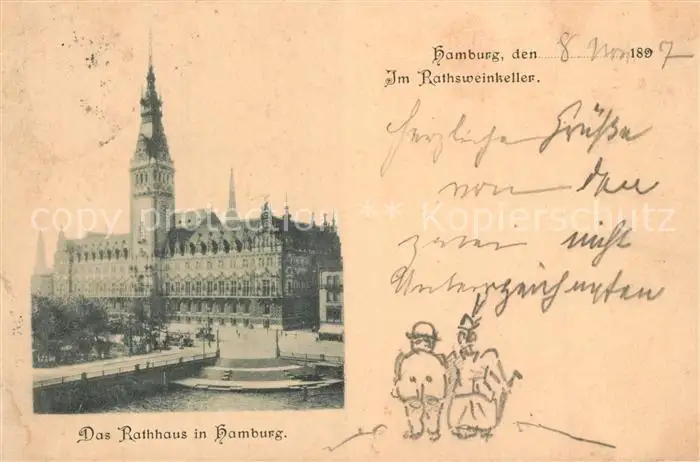 Hamburg, den 8 Nov 1897
Im Rathsweinkeller.
Herzliche Grüße
von den
zwei nicht
Unterzeichneten
copy protected ** Kopierschutz
Das Rathhaus in Hamburg.